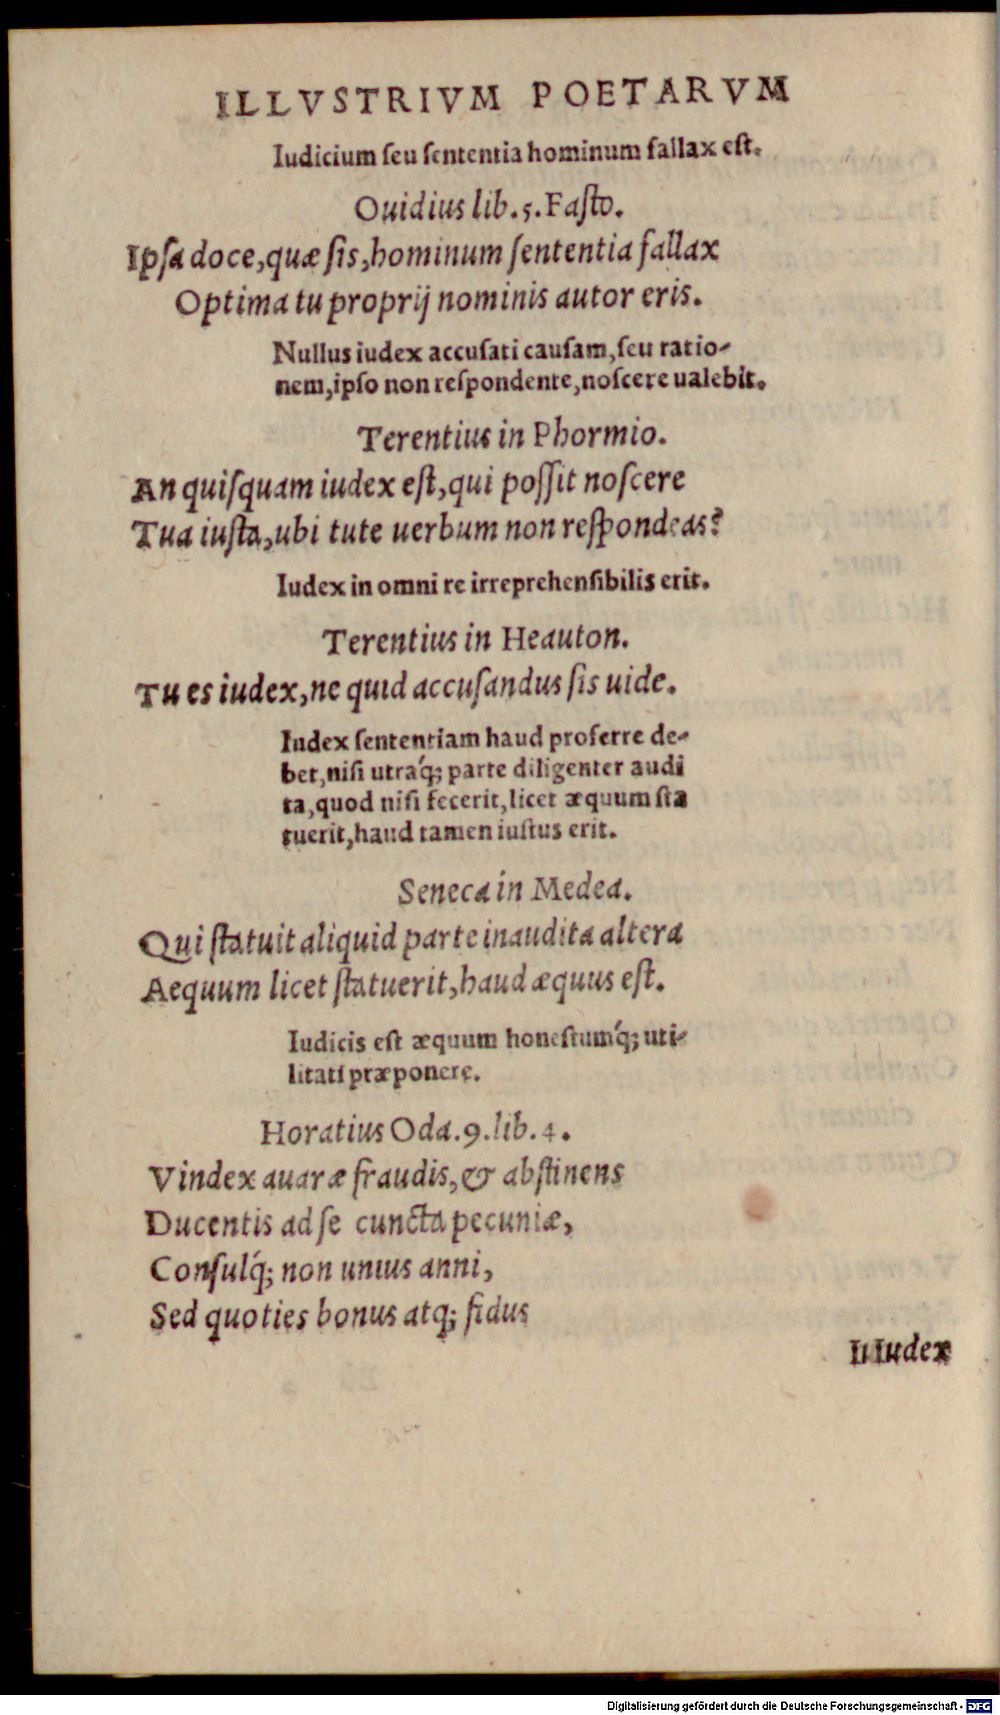 ILLVSTRIVM POETARVM
Iudicium seu sententia hominum fallax est.
Ouidius lib.5.Fasto.
Ipsa doce,quæ sis,hominum sententia fallax
Optima tu proprij nominis autor eris.
Nullus iudex accusati causam,seu ratio-
nem,ipso non respondente,noscere ualebit.
Terentius in Phormio.
An quisquam iudex est,qui possit noscere
Tua iusta,ubi tute uerbum non respondeas?
Iudex in omni re irreprehensibilis erit.
Terentius in Heauton.
Tu es iudex,ne quid accusandus sis uide.
Iudex sententiam haud proferre de-
bet,nisi utraq́; parte diligenter audi
ta,quod nisi fecerit,licet æquum sta
tuerit,haud tamen iustus erit.
Seneca in Medea.
Qui statuit aliquid parte inaudita altera
Aequum licet statuerit,haud æquus est.
Iudicis est æquum honestumq́; uti-
litati præponere.
Horatius Oda.9.lib.4.
Vindex auaræ fraudis,& abstinens
Ducentis ad se cuncta pecuniæ,
Consulq́; non unius anni,
Sed quoties bonus atq; fidus
Iudex
Digitalisierung gefördert durch die Deutsche Forschungsgemeinschaft - DFG